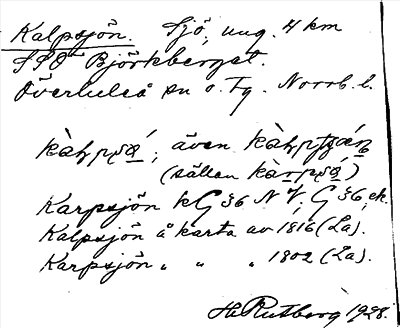 Kalpsjön. Sjö, ung. 4 km
SSO Björkberget.
Överluleå sn o. Tg. Norrb. l.
även
(sällen
Karpsjön kG 36 N V; G 36, ek.
Kalpsjön å karta av 1816 (La).
Karpsjön " " " 1802 (La).
H. Rutberg 1928.